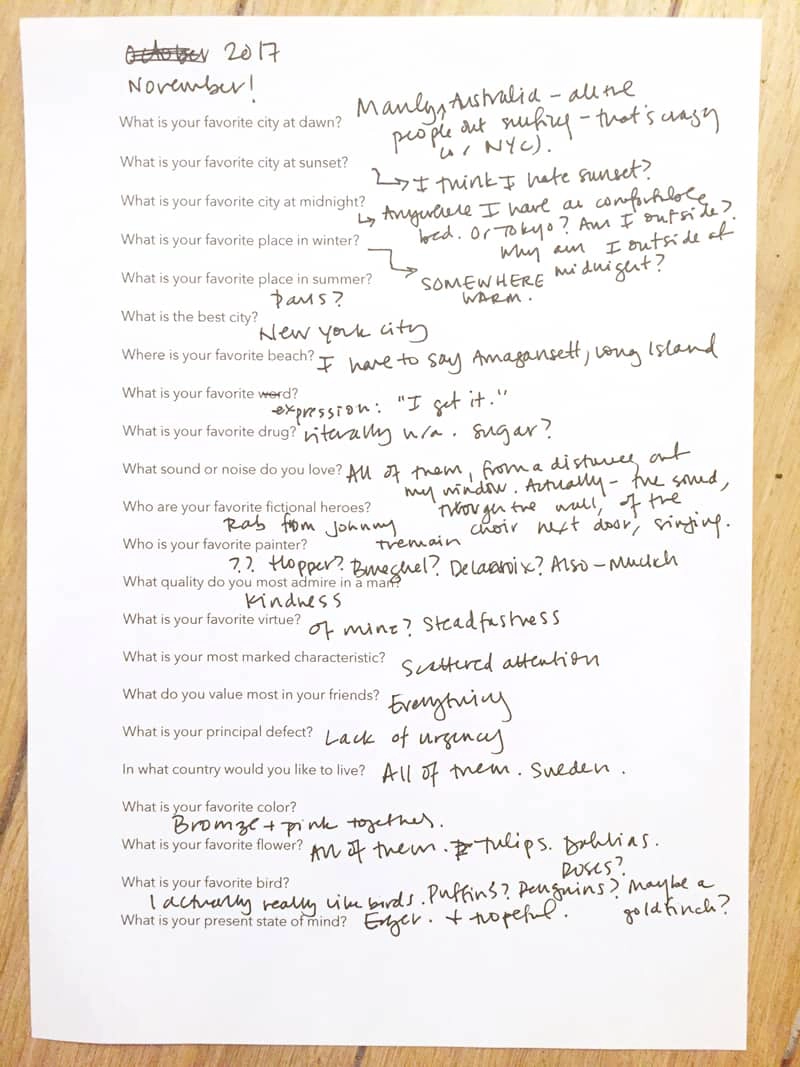 October 2017
November!
What is your favorite city at dawn? Manly, Australia – all the
people out surfing – that's crazy
(w/ NYC).
What is your favorite city at sunset?
↳ I think I hate sunset?
What is your favorite city at midnight?
↳ Anywhere I have a comfortable
bed. Or Tokyo? Am I outside?
Why am I outside at
midnight?
What is your favorite place in winter?
SOMEWHERE
WARM.
What is your favorite place in summer?
Paris?
What is the best city?
New York City
Where is your favorite beach? I have to say Amagansett, Long Island
What is your favorite word?
expression: "I get it."
What is your favorite drug? Literally n/a. Sugar?
What sound or noise do you love? All of them, from a distance, out
my window. Actually – the sound,
through the wall, of the
choir next door, singing.
Who are your favorite fictional heroes?
Rab from Johnny
Tremain
Who is your favorite painter?
?? Hopper? Brueghel? Delacroix? Also – Munch
What quality do you most admire in a man?
Kindness
What is your favorite virtue? Of mine? Steadfastness
What is your most marked characteristic? Scattered attention
What do you value most in your friends? Everything
What is your principal defect? Lack of urgency
In what country would you like to live? All of them. Sweden.
What is your favorite color?
Bronze + pink together.
What is your favorite flower? All of them. Tulips. Dahlias.
Roses?
What is your favorite bird?
I actually really like birds. Puffins? Penguins? Maybe a
goldfinch?
What is your present state of mind? Eager. + hopeful.